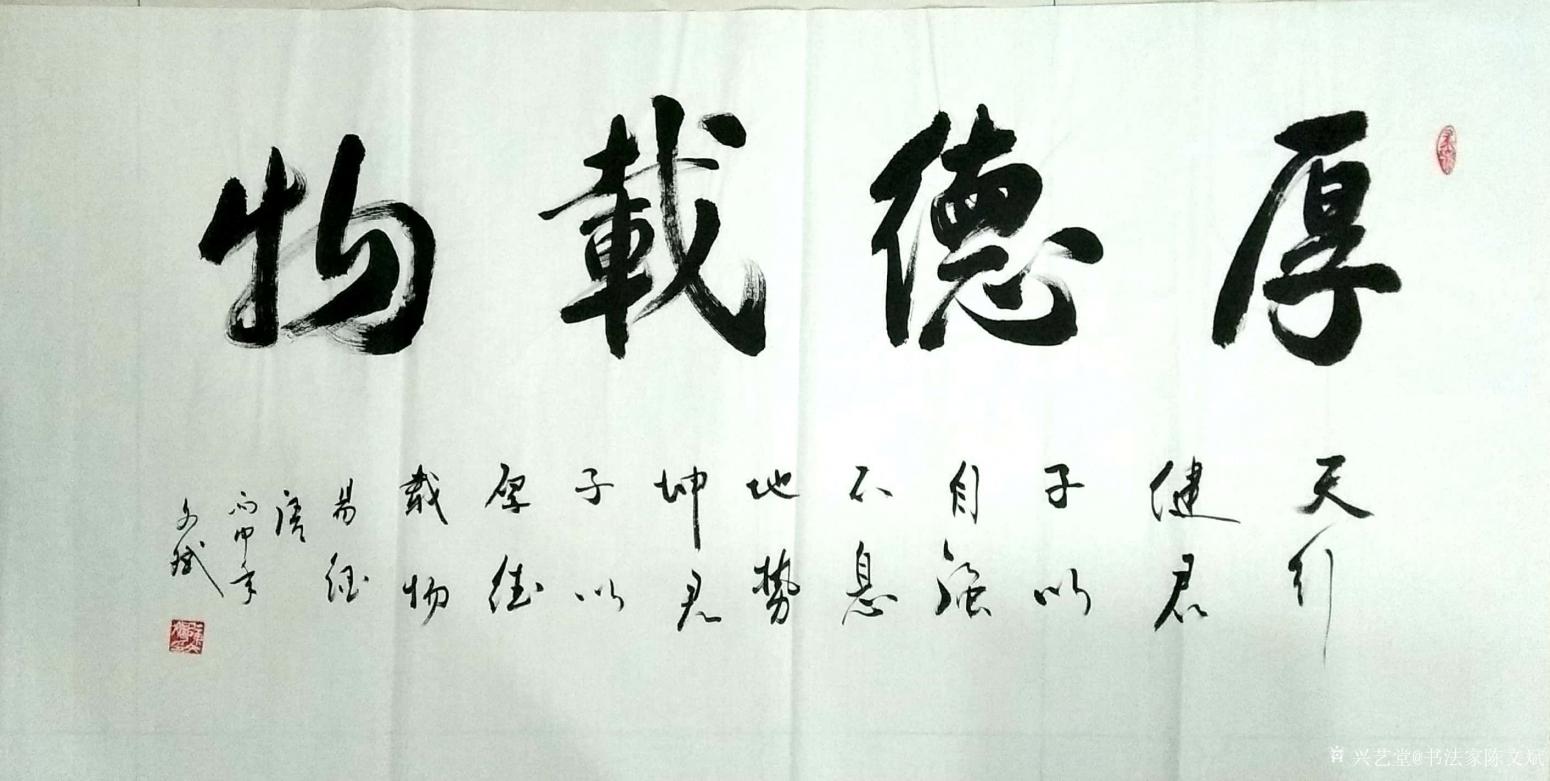 厚德載物
天行
健君
子以
自強
不息
地勢
坤君
子以
厚德
載物
易經
語
丙申年
文斌
兴艺堂@书法家陈文斌